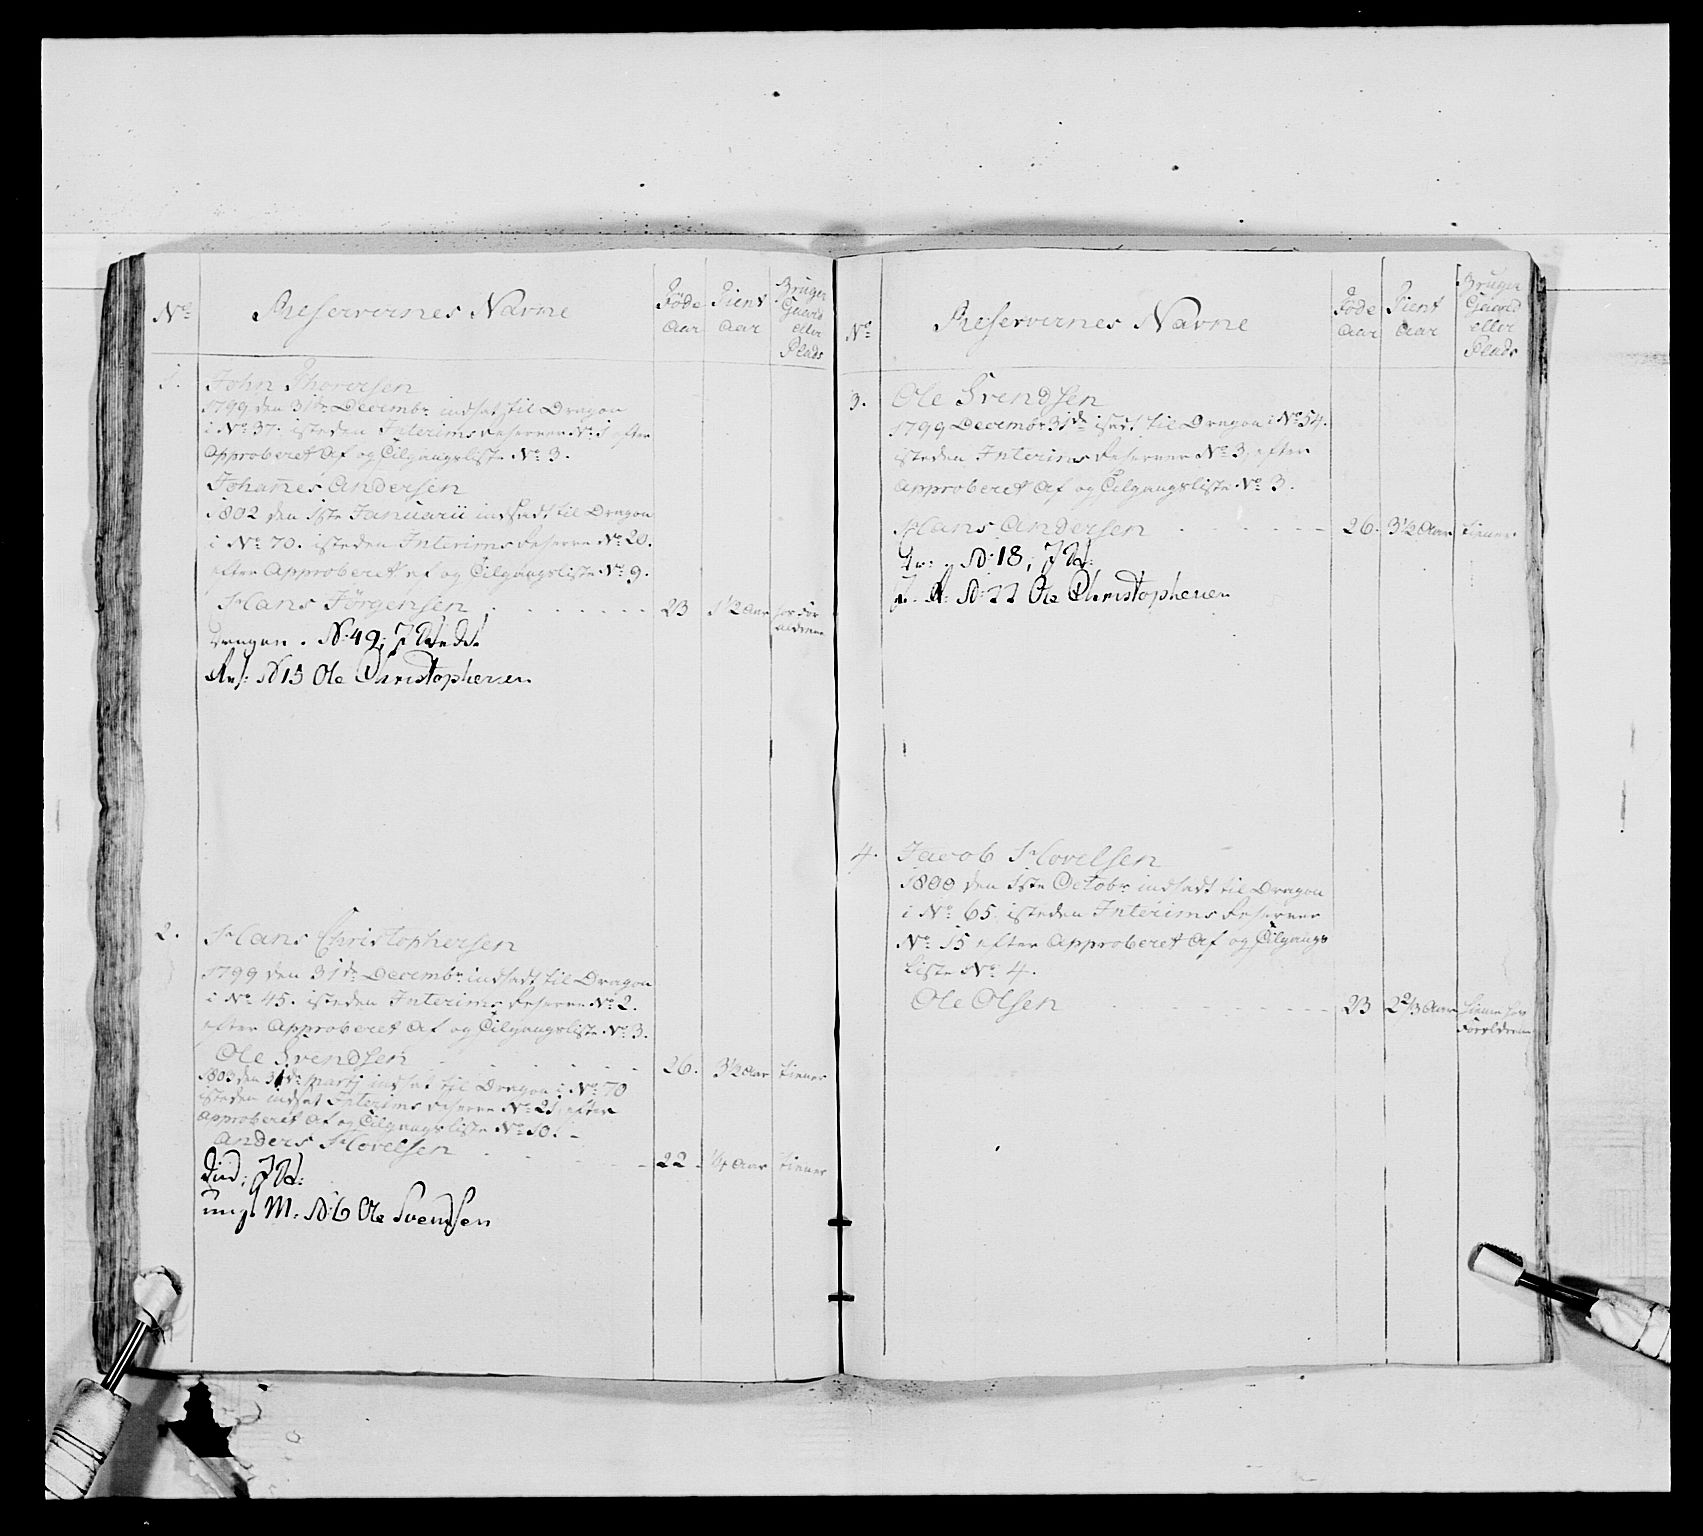 No
Reservernes Navne
Føde
Aar
Tient
Aar
Bruger
Gaard
eller
Plads
1.
John Thoresen
1799 den 31te Decembr. indsat til Dragon
i No 37. isteden Interims Reserver No 1 efter
Approberet Af og Tilgangsliste No 3.
Johanes Andersen
1802 den 1ste Januarii indsadt til Dragon
i No 70. isteden Interims Reserve No 20.
efter Approberet af og Tilgangsliste No 9.
Hans Jörgensen 23 1 1/2 Aar hos For
ældrene
Dragon. N: 49;
Res: N 15 Ole Christophersen
2.
Hans Christophersen
1799 den 31de Decembr indsadt til Dragon
i No 45. isteden Interims Reserve No 2.
efter Approberet Af og Tilgangsliste No 3.
Ole Svendsen 26. 3 1/2 Aar tiener
1803 den 31de Martj indsat til Dragon i No 70
isteden indsat Interims Reserve No 21, efter
Approberet Af og Tilgangsliste No 10.
Anders Hovelsen 22 1/4 Aar tiener
M. N: 6 Ole Svendsen
No
Reservernes Navne
Føde
Aar
Tient
Aar
Bruger
Gaard
eller
Plads
3.
Ole Svendsen
1799 Decembr 31de isadt til Dragon i No 54.
isteden Interims Reserver No 3, efter
Approberet Af og Tilgangsliste No 3.
Hans Andersen 26. 3 1/2 Aar tiener
Dr: N: 18;
R: N: 22 Ole Christophersen
4.
Jacob Hovelsen
1800 den 1ste Octobr indsadt til Dragon
i No 65. isteden Interims Reserver
No 15 efter Approberet Af og Tilgangs
liste No 4.
Ole Olsen 23 2 2/3 Aar tiener hos
Forældrene